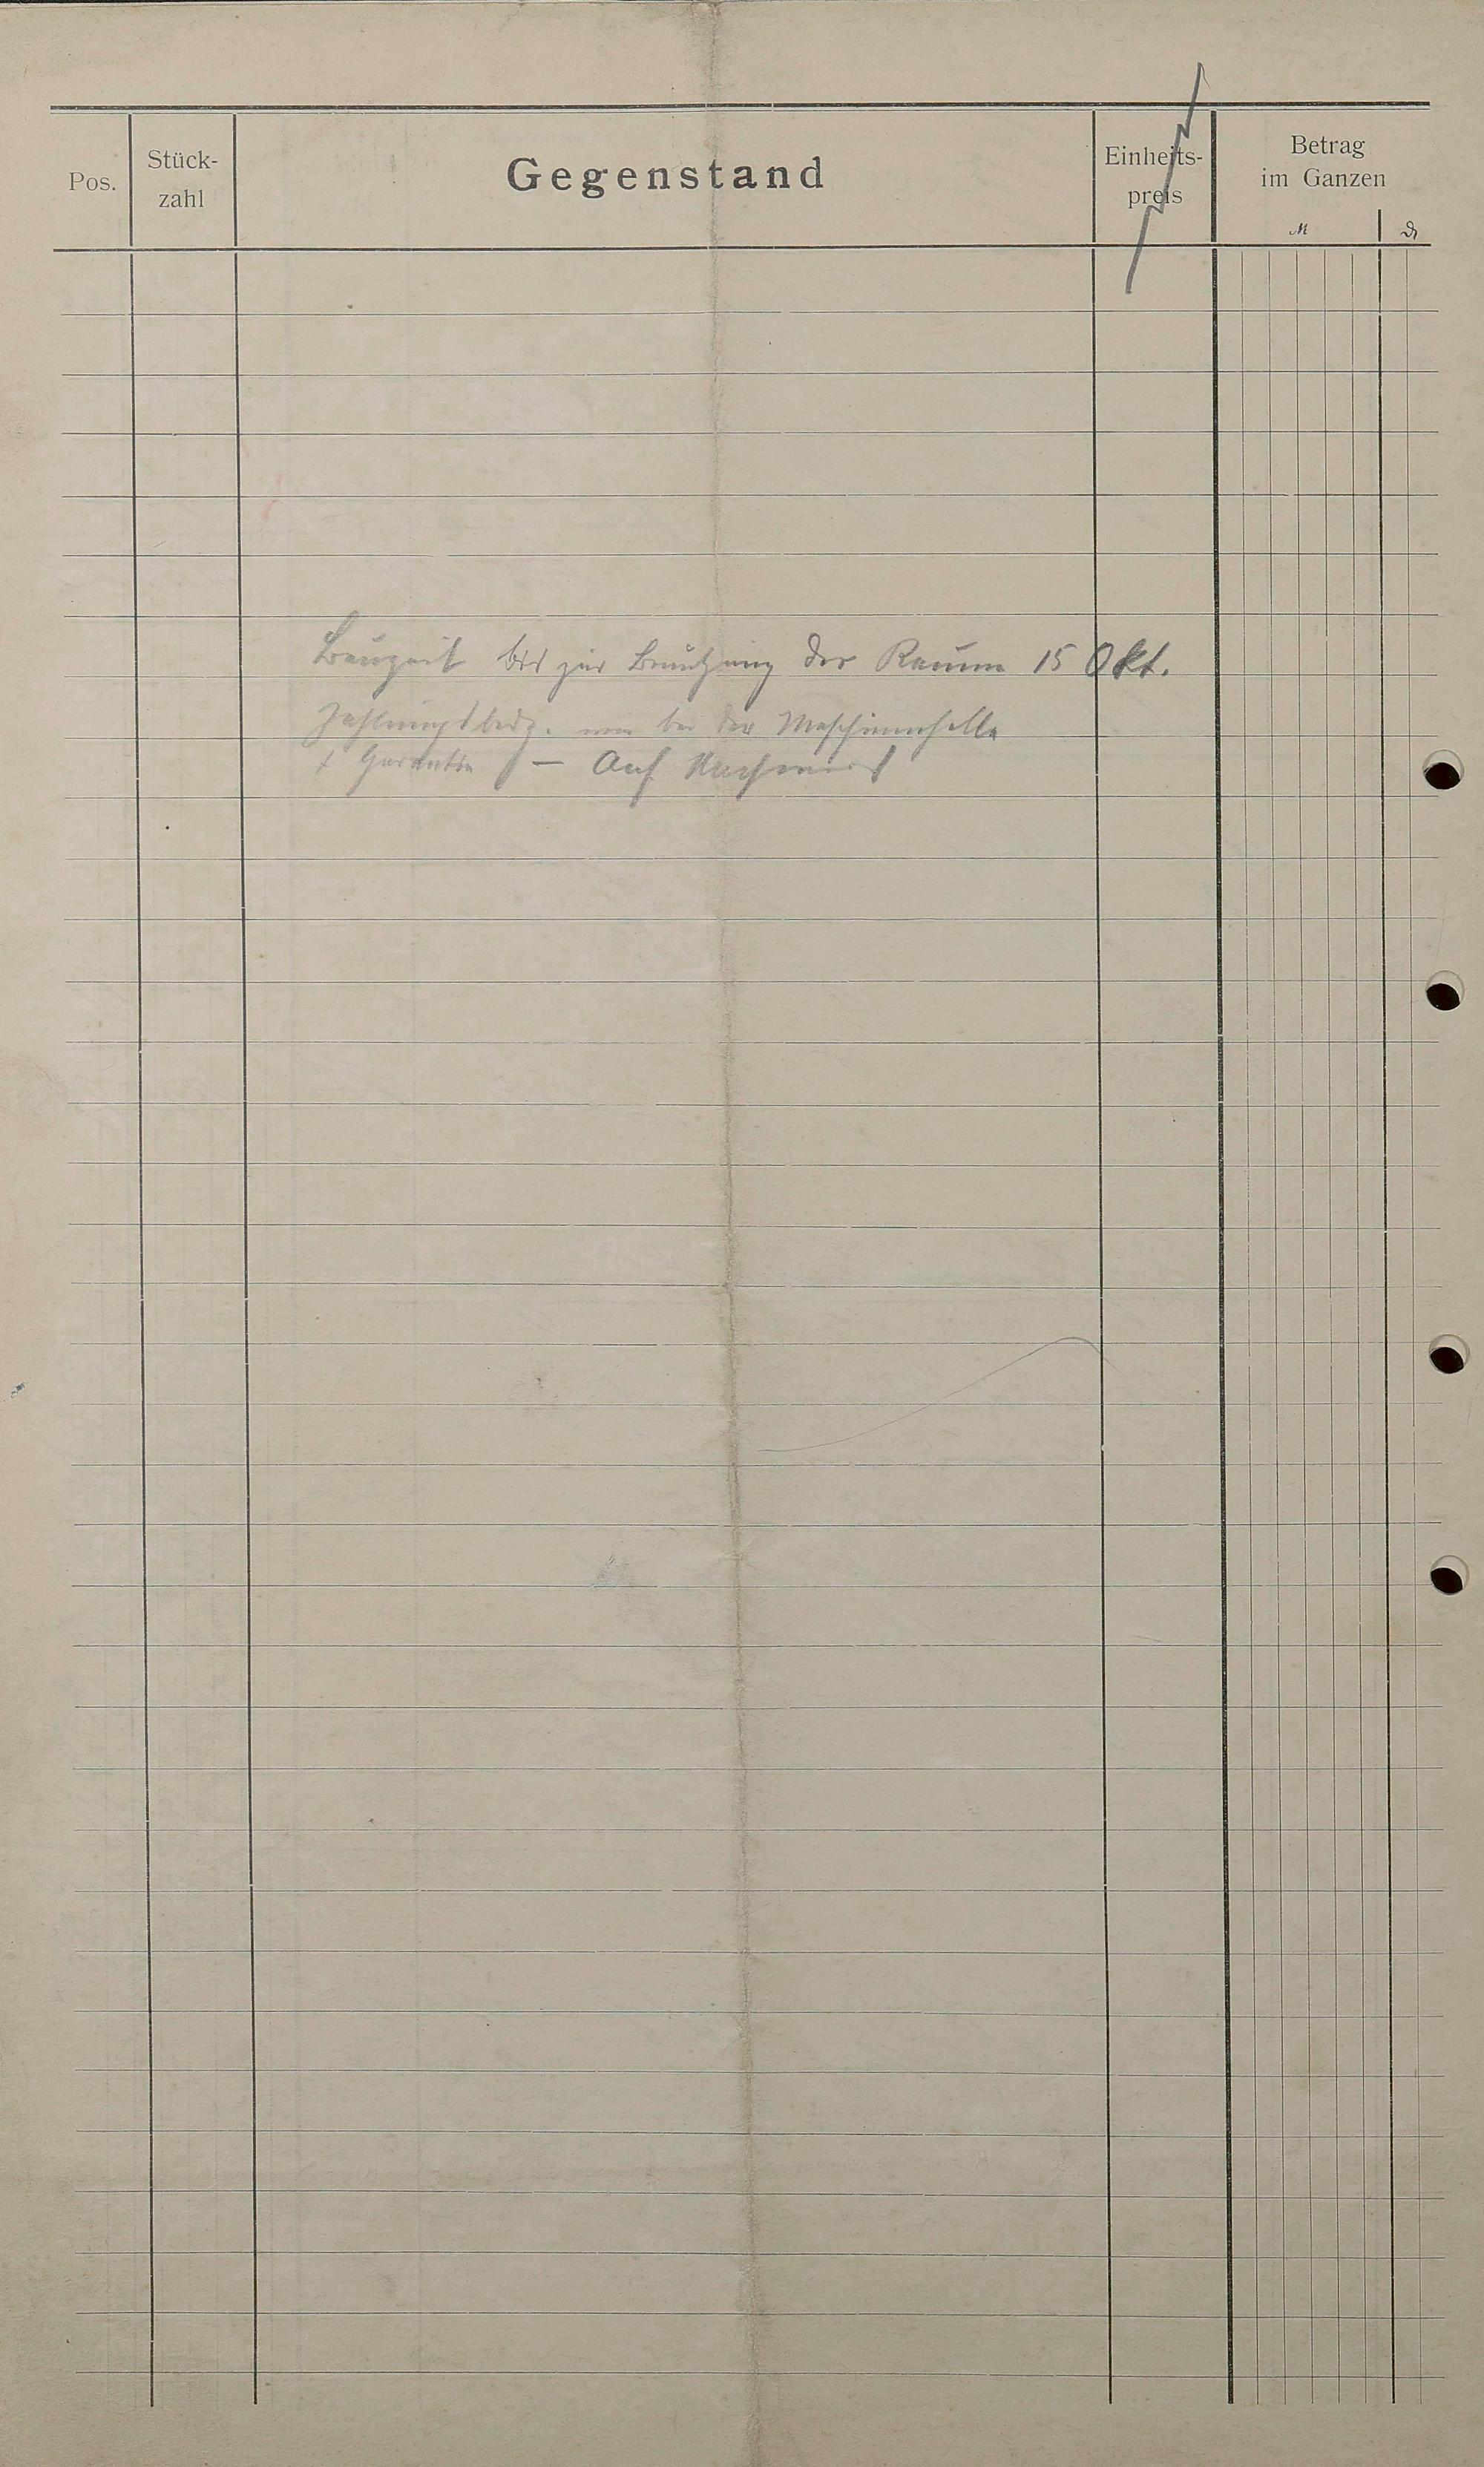 Pos.
Stück-
zahl
Gegenstand
Einheits-
preis
Betrag
im Ganzen
M
₰
Bauzeit bis zur Benützung der Raum 15 Okt.
Zahlungsbedg. wie bei der Maschinenhalle
+ Garantie — Auf Nachweis